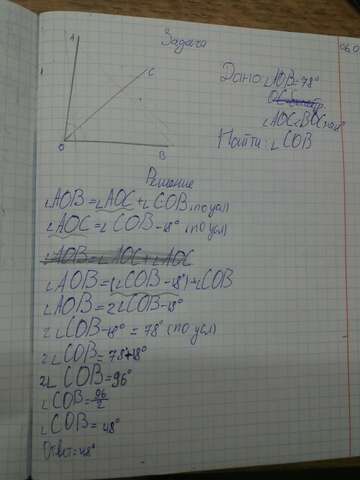 Задача
Дано: ∠AOB=78°
∠AOC<BOC на 18°
Найти: ∠COB
A
C
O
B
Решение
∠AOB=∠AOC+∠COB (по усл)
∠AOC=∠COB-18° (по усл)
∠AOB=∠AOC+∠AOC
∠AOB=(∠COB-18°)+∠COB
∠AOB=2∠COB-18°
2∠COB-18°=78° (по усл)
2∠COB=78+18°
2∠COB=96°
∠COB=96/2
∠COB=48°
Ответ: 48°